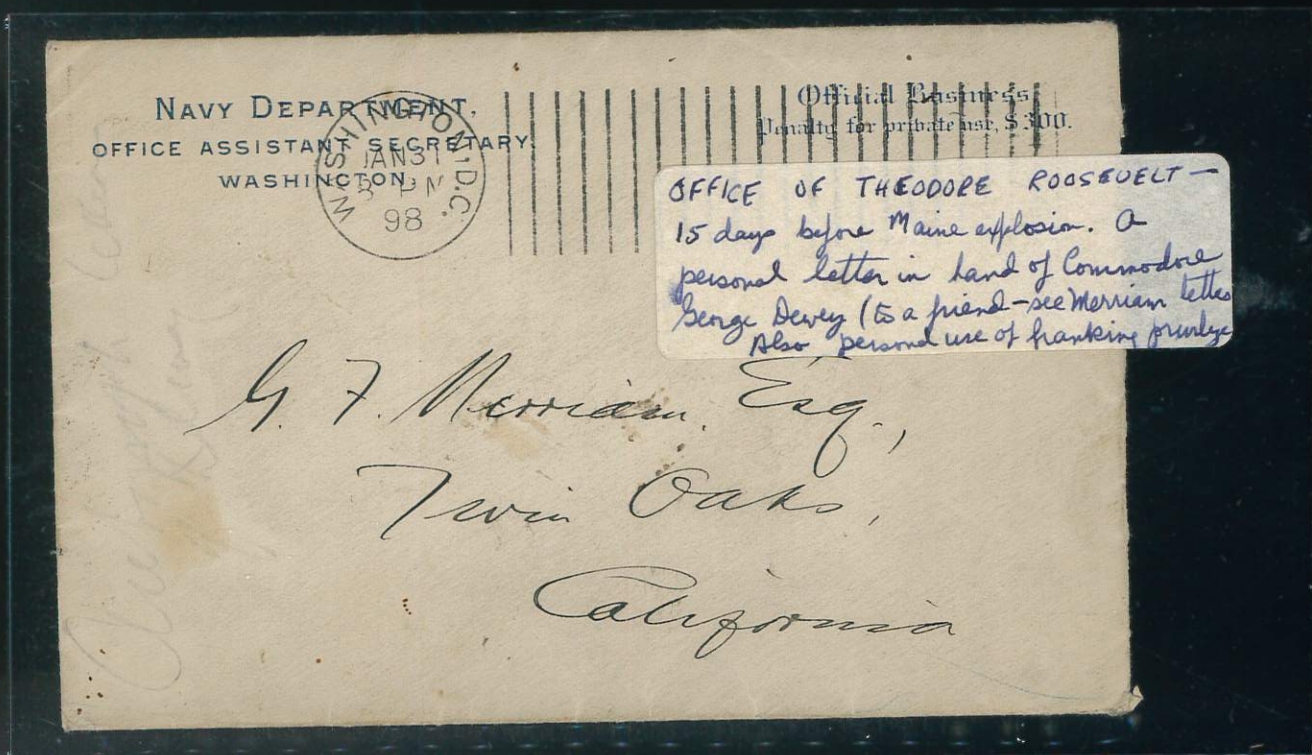 NAVY DEPARTMENT,
OFFICE ASSISTANT SECRETARY,
WASHINGTON.
WASHINGTON, D.C.
JAN 31
PM
98
Official Business.
Penalty for private use, $300.
OFFICE OF THEODORE ROOSEVELT —
15 days before Maine explosion. A
personal letter in hand of Commodore
George Dewey (to a friend - see Merriam letter
Also personal use of franking privilege
G. F. Merriam, Esq.,
Twin Oaks,
California